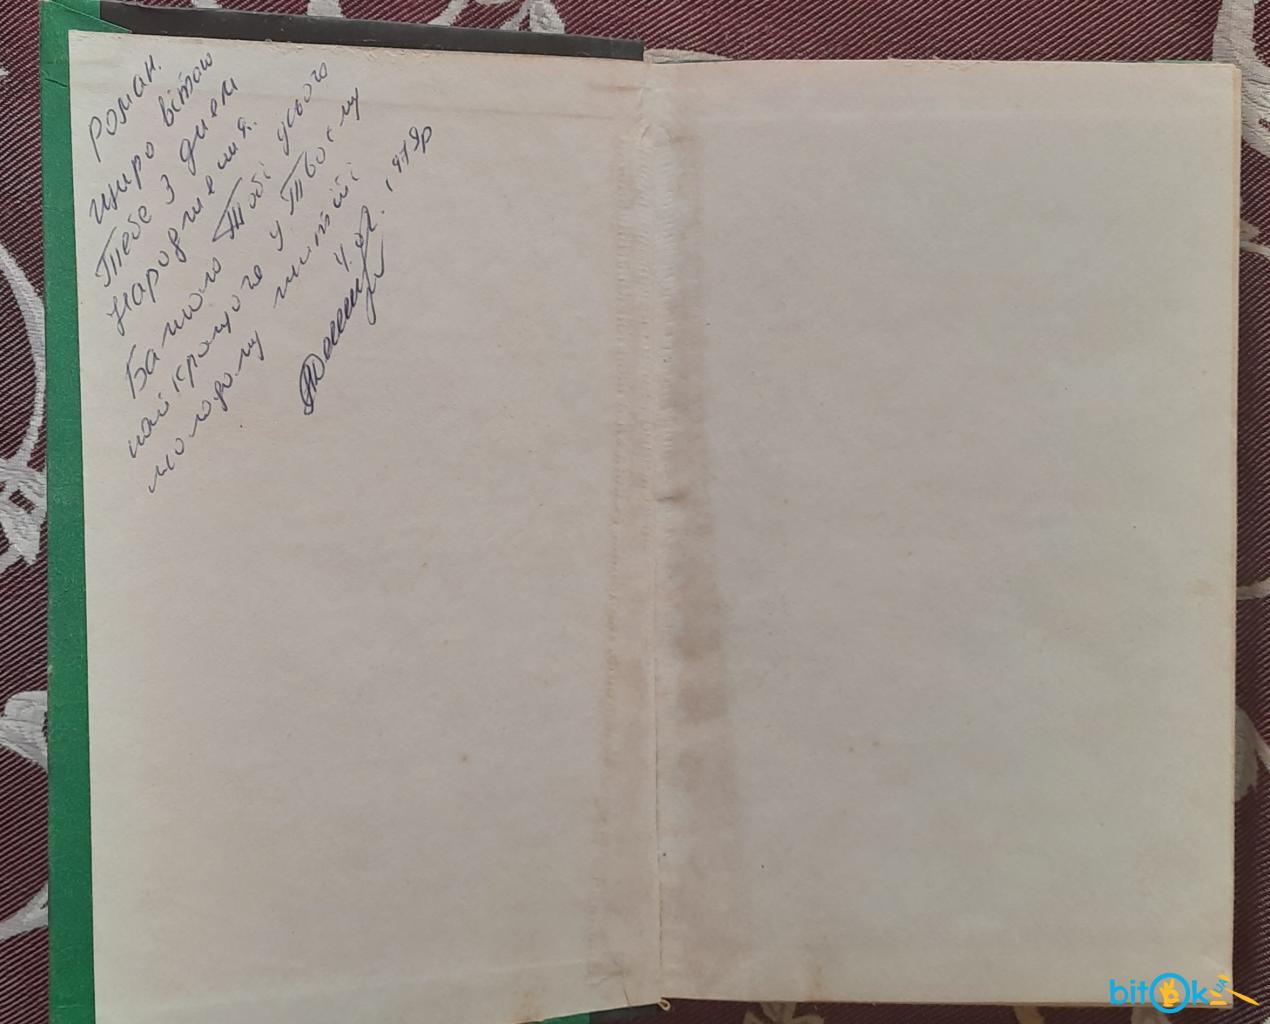 Роман.
Щиро вітаю
Тебе з днем
народження.
Бажаю Тобі усього
найкращого у Твоєму
молодому житті
4.02. 1979р
bitok.ua